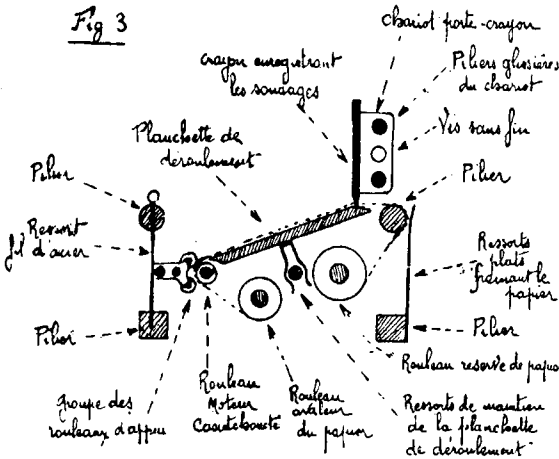 Fig 3
Chariot porte-crayon
crayon enregistrant
les sondages
Piliers glissières
du chariot
Vis sans fin
Planchette de
déroulement
Pilier
Pilier
Ressort
fil d'acier
Ressorts
plats
freinant le
papier
Pilier
Pilier
Rouleau reserve de papier
groupe des
rouleaux d'appui
Rouleau
Moteur
Caoutchouté
Rouleau
du papier
Ressorts de maintien
de la planchette
de déroulement